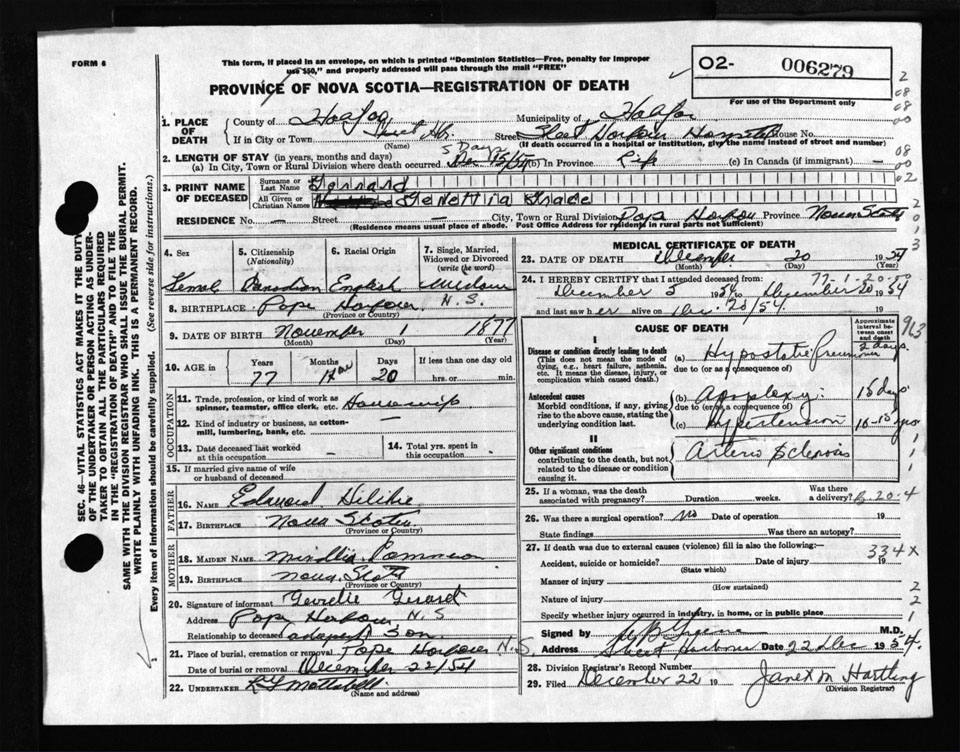 FORM 6
This form, if placed in an envelope, on which is printed "Dominion Statistics—Free, penalty for improper
use $50," and properly addressed will pass through the mail "FREE"
O2- 006279
For use of the Department only
PROVINCE OF NOVA SCOTIA—REGISTRATION OF DEATH
1. PLACE OF DEATH
County of Halifax Municipality of Halifax
If in City or Town (Name) Street Sheet Harbour Hospital House No.
(If death occurred in a hospital or institution, give the name instead of street and number)
2. LENGTH OF STAY (in years, months and days) 5 Days
(a) In City, Town or Rural Division where death occurred Dec 15/54 (b) In Province Life (c) In Canada (if immigrant) —
3. PRINT NAME OF DECEASED
Surname or Last Name Gerrard
All Given or Christian Names
RESIDENCE No. — Street — City, Town or Rural Division Pope Harbour Province Nova Scotia
(Residence means usual place of abode. Post Office Address for residents in rural parts not sufficient)
4. Sex Female
5. Citizenship (Nationality) Canadian
6. Racial Origin English
7. Single, Married, Widowed or Divorced (write the word) Widow
8. BIRTHPLACE Pope Harbour N.S.
(Province or Country)
9. DATE OF BIRTH November 1 1877
(Month) (Day) (Year)
10. AGE in Years Months Days If less than one day old
77 1 20 hrs. or min.
OCCUPATION
11. Trade, profession, or kind of work as spinner, teamster, office clerk, etc. Housewife
12. Kind of industry or business, as cotton-mill, lumbering, bank, etc.
13. Date deceased last worked at this occupation
14. Total yrs. spent in this occupation
15. If married give name of wife or husband of deceased
FATHER
16. NAME Edward
17. BIRTHPLACE Nova Scotia
(Province or Country)
MOTHER
18. MAIDEN NAME
19. BIRTHPLACE Nova Scotia
(Province or Country)
20. Signature of informant
Address Pope Harbour, N.S
Relationship to deceased adopted Son
21. Place of burial, cremation or removal Pope Harbour N.S.
Date of burial or removal December 22/54
22. UNDERTAKER
(Name and address)
MEDICAL CERTIFICATE OF DEATH
23. DATE OF DEATH December 20 1954
(Month) (Day) (Year)
77-1-20-50
24. I HEREBY CERTIFY that I attended deceased from:
December 5 1954 to December 20 1954
and last saw her alive on Dec. 20/54 19
CAUSE OF DEATH
Approximate interval between onset and death
963
I
Disease or condition directly leading to death
(This does not mean the mode of dying, e.g., heart failure, asthenia, etc. It means the disease, injury, or complication which caused death.)
(a) Hypostatic Pneumonia 2 days.
due to (or as a consequence of)
Antecedent causes
Morbid conditions, if any, giving rise to the above cause, stating the underlying condition last.
(b) Apoplexy 15 days
due to (or as a consequence of)
(c) Hypertension 10-15 yrs
II
Other significant conditions
contributing to the death, but not related to the disease or condition causing it.
Arterio Sclerosis
25. If a woman, was the death associated with pregnancy? Duration weeks. Was there a delivery? B-20-4
26. Was there a surgical operation? no Date of operation 19
State findings Was there an autopsy?
27. If death was due to external causes (violence) fill in also the following:— 334X
Accident, suicide or homicide? Date of injury 19
(State which)
Manner of injury
(How sustained)
Nature of injury
Specify whether injury occurred in industry, in home, or in public place
Signed by M.D.
Address Sheet Harbour Date 22 Dec 1954.
28. Division Registrar's Record Number
29. Filed December 22 19 Janet M Hartling
(Division Registrar)
SEC. 46—VITAL STATISTICS ACT MAKES IT THE DUTY
OF THE UNDERTAKER OR PERSON ACTING AS UNDER-
TAKER TO OBTAIN ALL THE PARTICULARS REQUIRED
IN THE "REGISTRATION OF DEATH" AND TO FILE THE
SAME WITH THE DIVISION REGISTRAR WHO SHALL ISSUE THE BURIAL PERMIT.
WRITE PLAINLY WITH UNFADING INK. THIS IS A PERMANENT RECORD.
Every item of information should be carefully supplied. (See reverse side for instructions.)